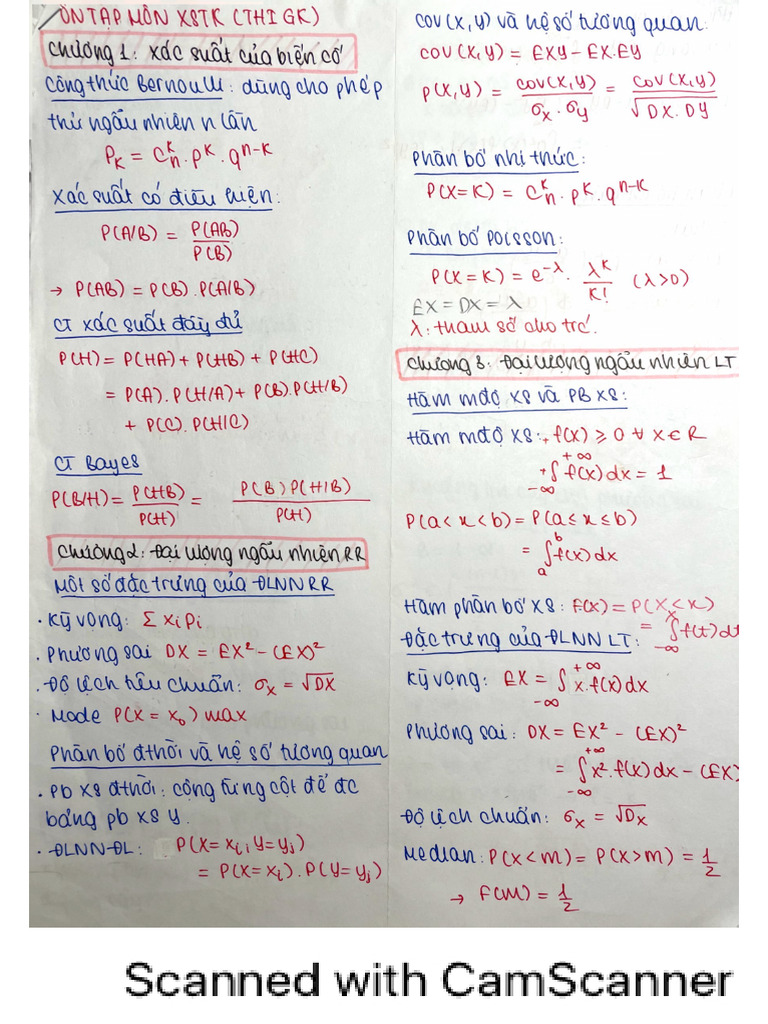 ÔN TẬP MÔN XSTK (THI GK)
Chương 1: Xác suất của biến cố
Công thức Bernoulli: dùng cho phép
thử ngẫu nhiên n lần
P_K = C_n^k . p^k . q^{n-k}
Xác suất có điều kiện:
P(A/B) = P(AB) / P(B)
→ P(AB) = P(B). P(A/B)
CT xác suất đầy đủ
P(H) = P(HA) + P(HB) + P(HC)
= P(A). P(H/A) + P(B). P(H/B)
+ P(C). P(H/C)
CT Bayes
P(B/H) = P(HB) / P(H) = P(B) P(H/B) / P(H)
Chương 2: Đại lượng ngẫu nhiên RR
Một số đặc trưng của ĐLNN RR
. Kỳ vọng: Σ x_i p_i
. Phương sai DX = EX² - (EX)²
. Độ lệch tiêu chuẩn: σ_x = √DX
. Mode P(X = x_0) max
Phân bố đthời và hệ số tương quan
. Pb xs đthời: cộng từng cột để đc
bảng pb xs Y.
. ĐLNN ĐL: P(X = x_i; Y = y_j)
= P(X = x_i). P(Y = y_j)
COV (X, Y) và hệ số tương quan:
COV (X, Y) = EXY - EX. EY
ρ(X, Y) = cov(X, Y) / σ_x . σ_y = cov(X, Y) / √DX. DY
Phân bố nhị thức:
P(X = K) = C_n^k . p^k . q^{n-k}
Phân bố Poisson:
P(X = K) = e^{-λ} . λ^k / K! (λ > 0)
EX = DX = λ
λ: tham số cho trc.
Chương 3: Đại lượng ngẫu nhiên LT
Hàm mđộ XS và PB XS:
Hàm mđộ XS: + f(x) ≥ 0 ∀ x ∈ R
+ ∫_{-∞}^{+∞} f(x) dx = 1
P(a < x < b) = P(a ≤ x ≤ b)
= ∫_a^b f(x) dx
Hàm phân bố XS: F(x) = P(X < x)
= ∫_{-∞}^x f(t) dt
Đặc trưng của ĐLNN LT:
Kỳ vọng: EX = ∫_{-∞}^{+∞} x. f(x) dx
Phương sai: DX = EX² - (EX)²
= ∫_{-∞}^{+∞} x². f(x) dx - (EX)
Độ lệch chuẩn: σ_x = √Dx
Median: P(X < m) = P(X > m) = 1/2
→ F(M) = 1/2
Scanned with CamScanner